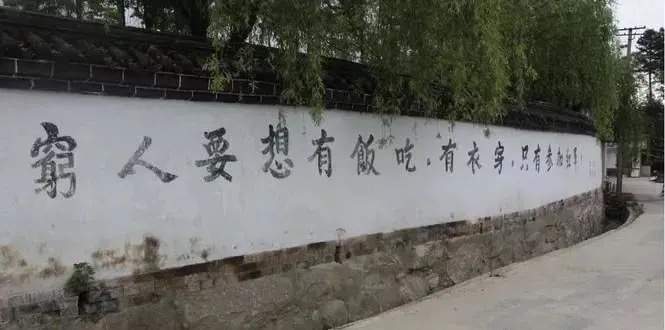 窮人要想有飯吃，有衣穿，只有參加紅軍！